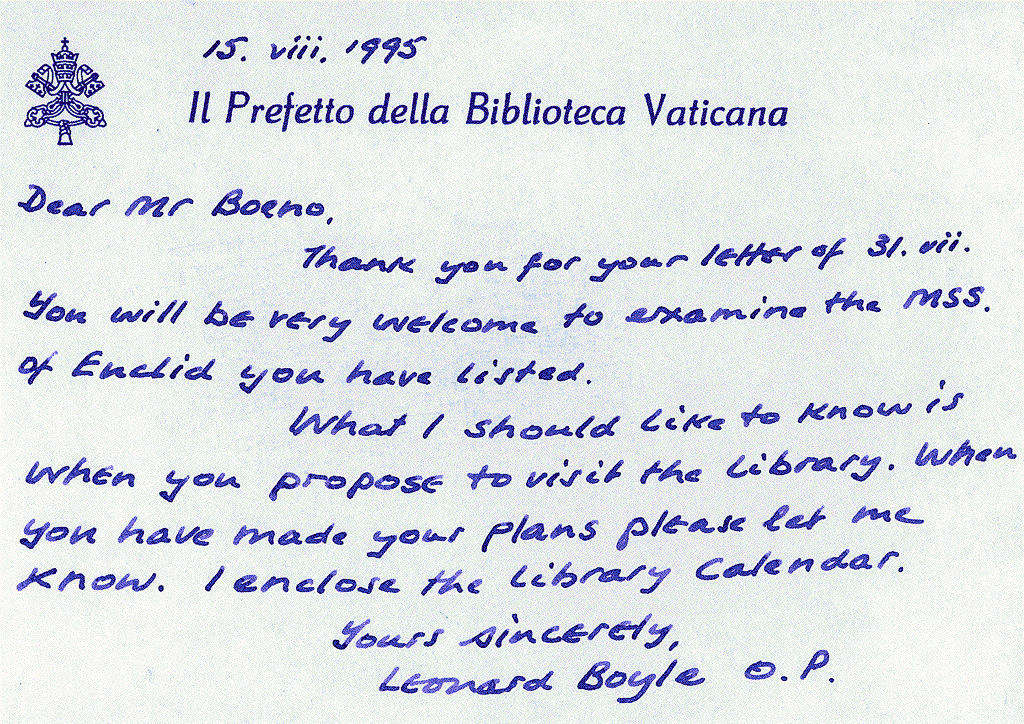 15. viii. 1995
Il Prefetto della Biblioteca Vaticana
Dear Mr Boeno,
Thank you for your letter of 31. vii.
You will be very welcome to examine the MSS.
of Euclid you have listed.
What I should like to know is
when you propose to visit the Library. When
you have made your plans please let me
know. I enclose the Library Calendar.
Yours sincerely,
Leonard Boyle O.P.